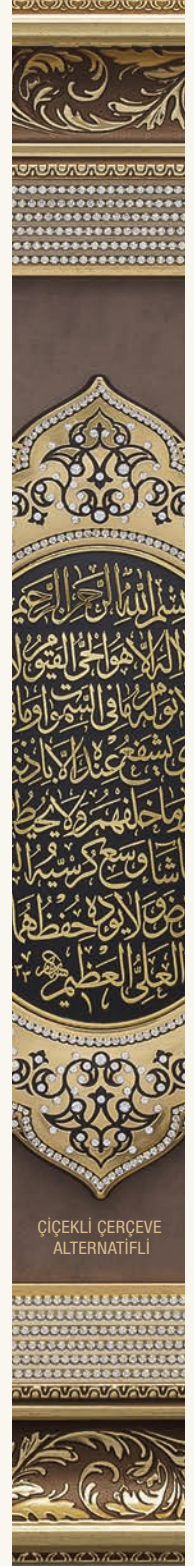 بسم الله الرحمن الرحيم
اله الا هو الحي القيوم لا
نوم له ما في السموات وما
يشفع عنده الا باذنه
ما خلفهم ولا يحيط
شاء وسع كرسيه
ض ولا يؤده حفظهما
العلي العظيم
ÇİÇEKLİ ÇERÇEVE
ALTERNATİFLİ